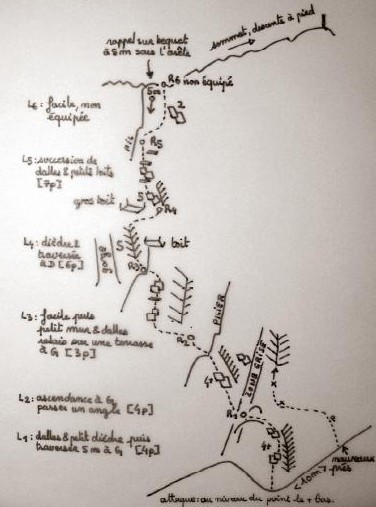 rappel sur becquet
à 8m sous l'arête
sommet, descente à pied
R6 non équipé
50m
L6: facile, non
équipée
2
R5
L5: succession de
dalles & petits toits
[7p]
5
gros toit
R4
L4: dièdre &
traversée
à D [6p]
5
toit
R3
L3: facile puis
petit mur & dalles
relais sur une terrasse
à G [3p]
PILIER
R2
ZONE GRISE
4+
L2: ascendance à G
passer un angle [4p]
R1
L1: dalles & petit dièdre puis
traversée 5m à G [4p]
4+
<10m>
attaque: au niveau du point le + bas.